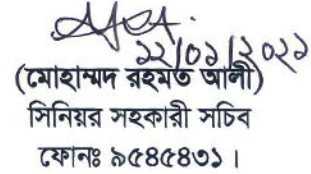 ১২/০১/২০২১
(মোহাম্মদ রহমত আলী)
সিনিয়র সহকারী সচিব
ফোনঃ ৯৫৪৫৪৩১।